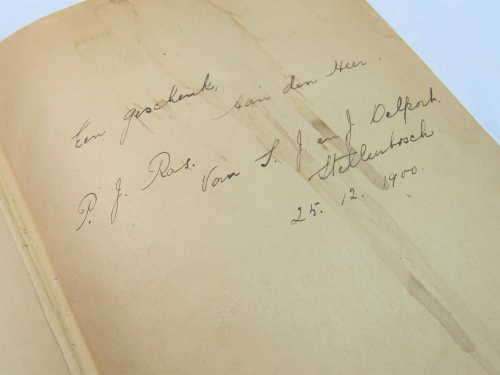 Een geschenk,
aan den Heer.
P. J. Ras.
Vom S. J en J Delport.
Stellenbosch
25. 12. 1900.